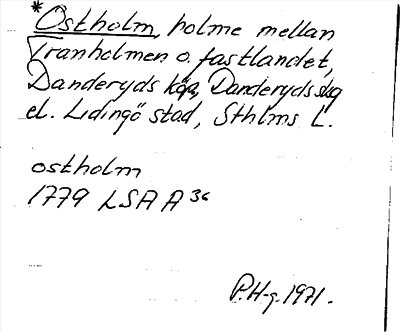 *Östholm, holme mellan
Tranholmen o. fastlandet,
Danderyds köp, Danderyds slg
el. Lidingö stad, Sthlms L.
ostholm
1779 LSA A 36
P.H-g. 1971.